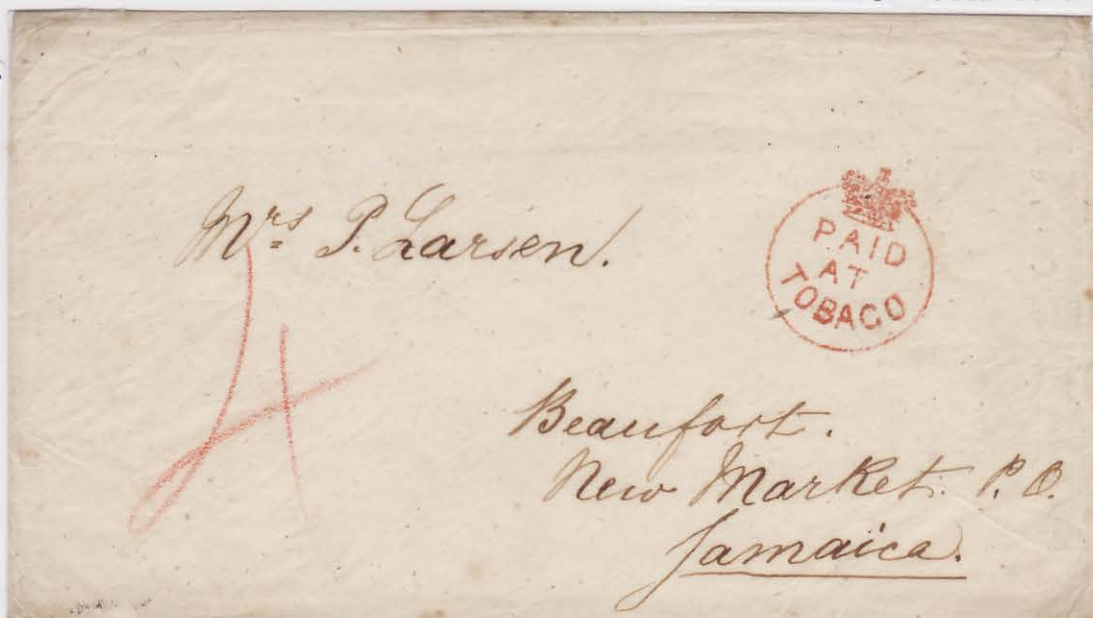 Mrs P. Larsen.
PAID
AT
TOBAGO
4
Beaufort.
New Market. P.O.
Jamaica.